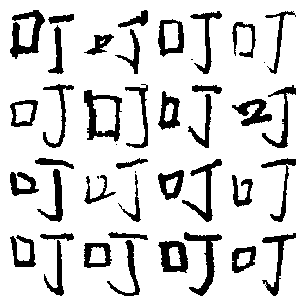 叮叮叮叮
叮叮叮叮
叮叮叮叮
叮叮叮叮